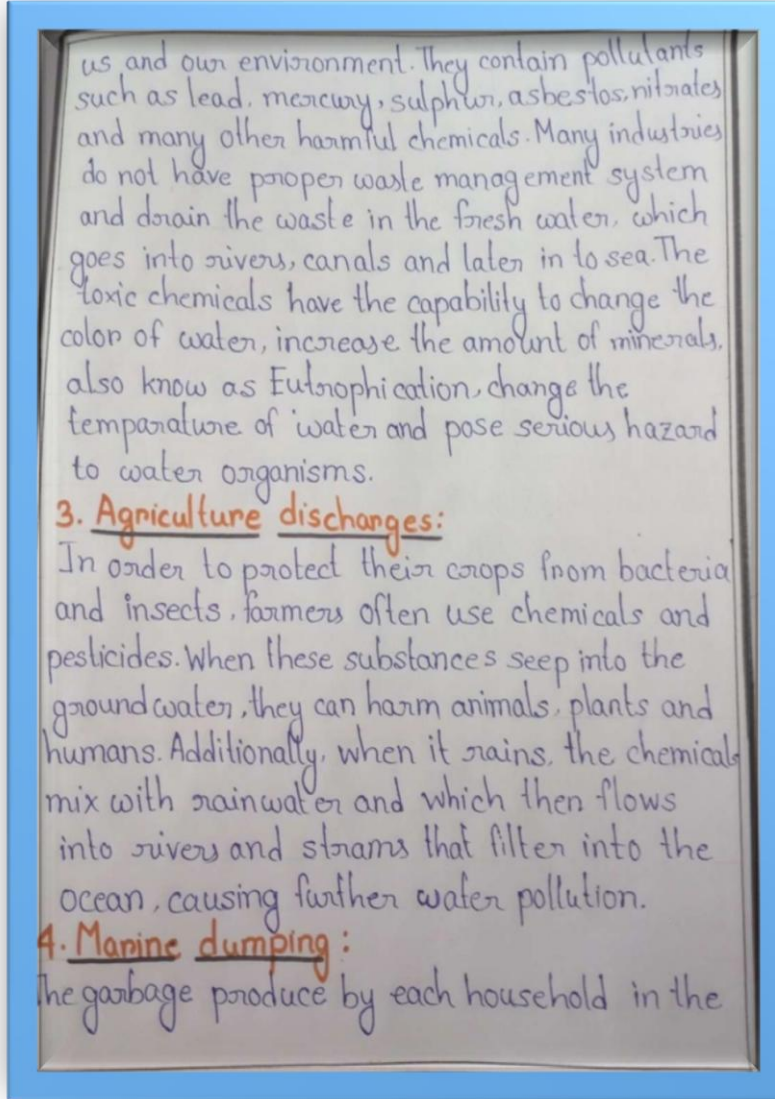 us and our environment. They contain pollutants
such as lead, mercury, sulphur, asbestos, nitrates
and many other harmful chemicals. Many industries
do not have proper waste management system
and drain the waste in the fresh water, which
goes into rivers, canals and later in to sea. The
toxic chemicals have the capability to change the
color of water, increase the amount of minerals,
also know as Eutrophication, change the
temparature of water and pose serious hazard
to water organisms.
3. Agriculture discharges:
In order to protect their crops from bacteria
and insects, farmers often use chemicals and
pesticides. When these substances seep into the
groundwater, they can harm animals, plants and
humans. Additionally, when it rains, the chemicals
mix with rainwater and which then flows
into rivers and strams that filter into the
ocean, causing further water pollution.
4. Marine dumping:
The garbage produce by each household in the